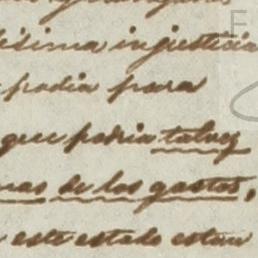 ísima injusticia
podia para
que podria talvez
nas de los gastos,
este estado estan